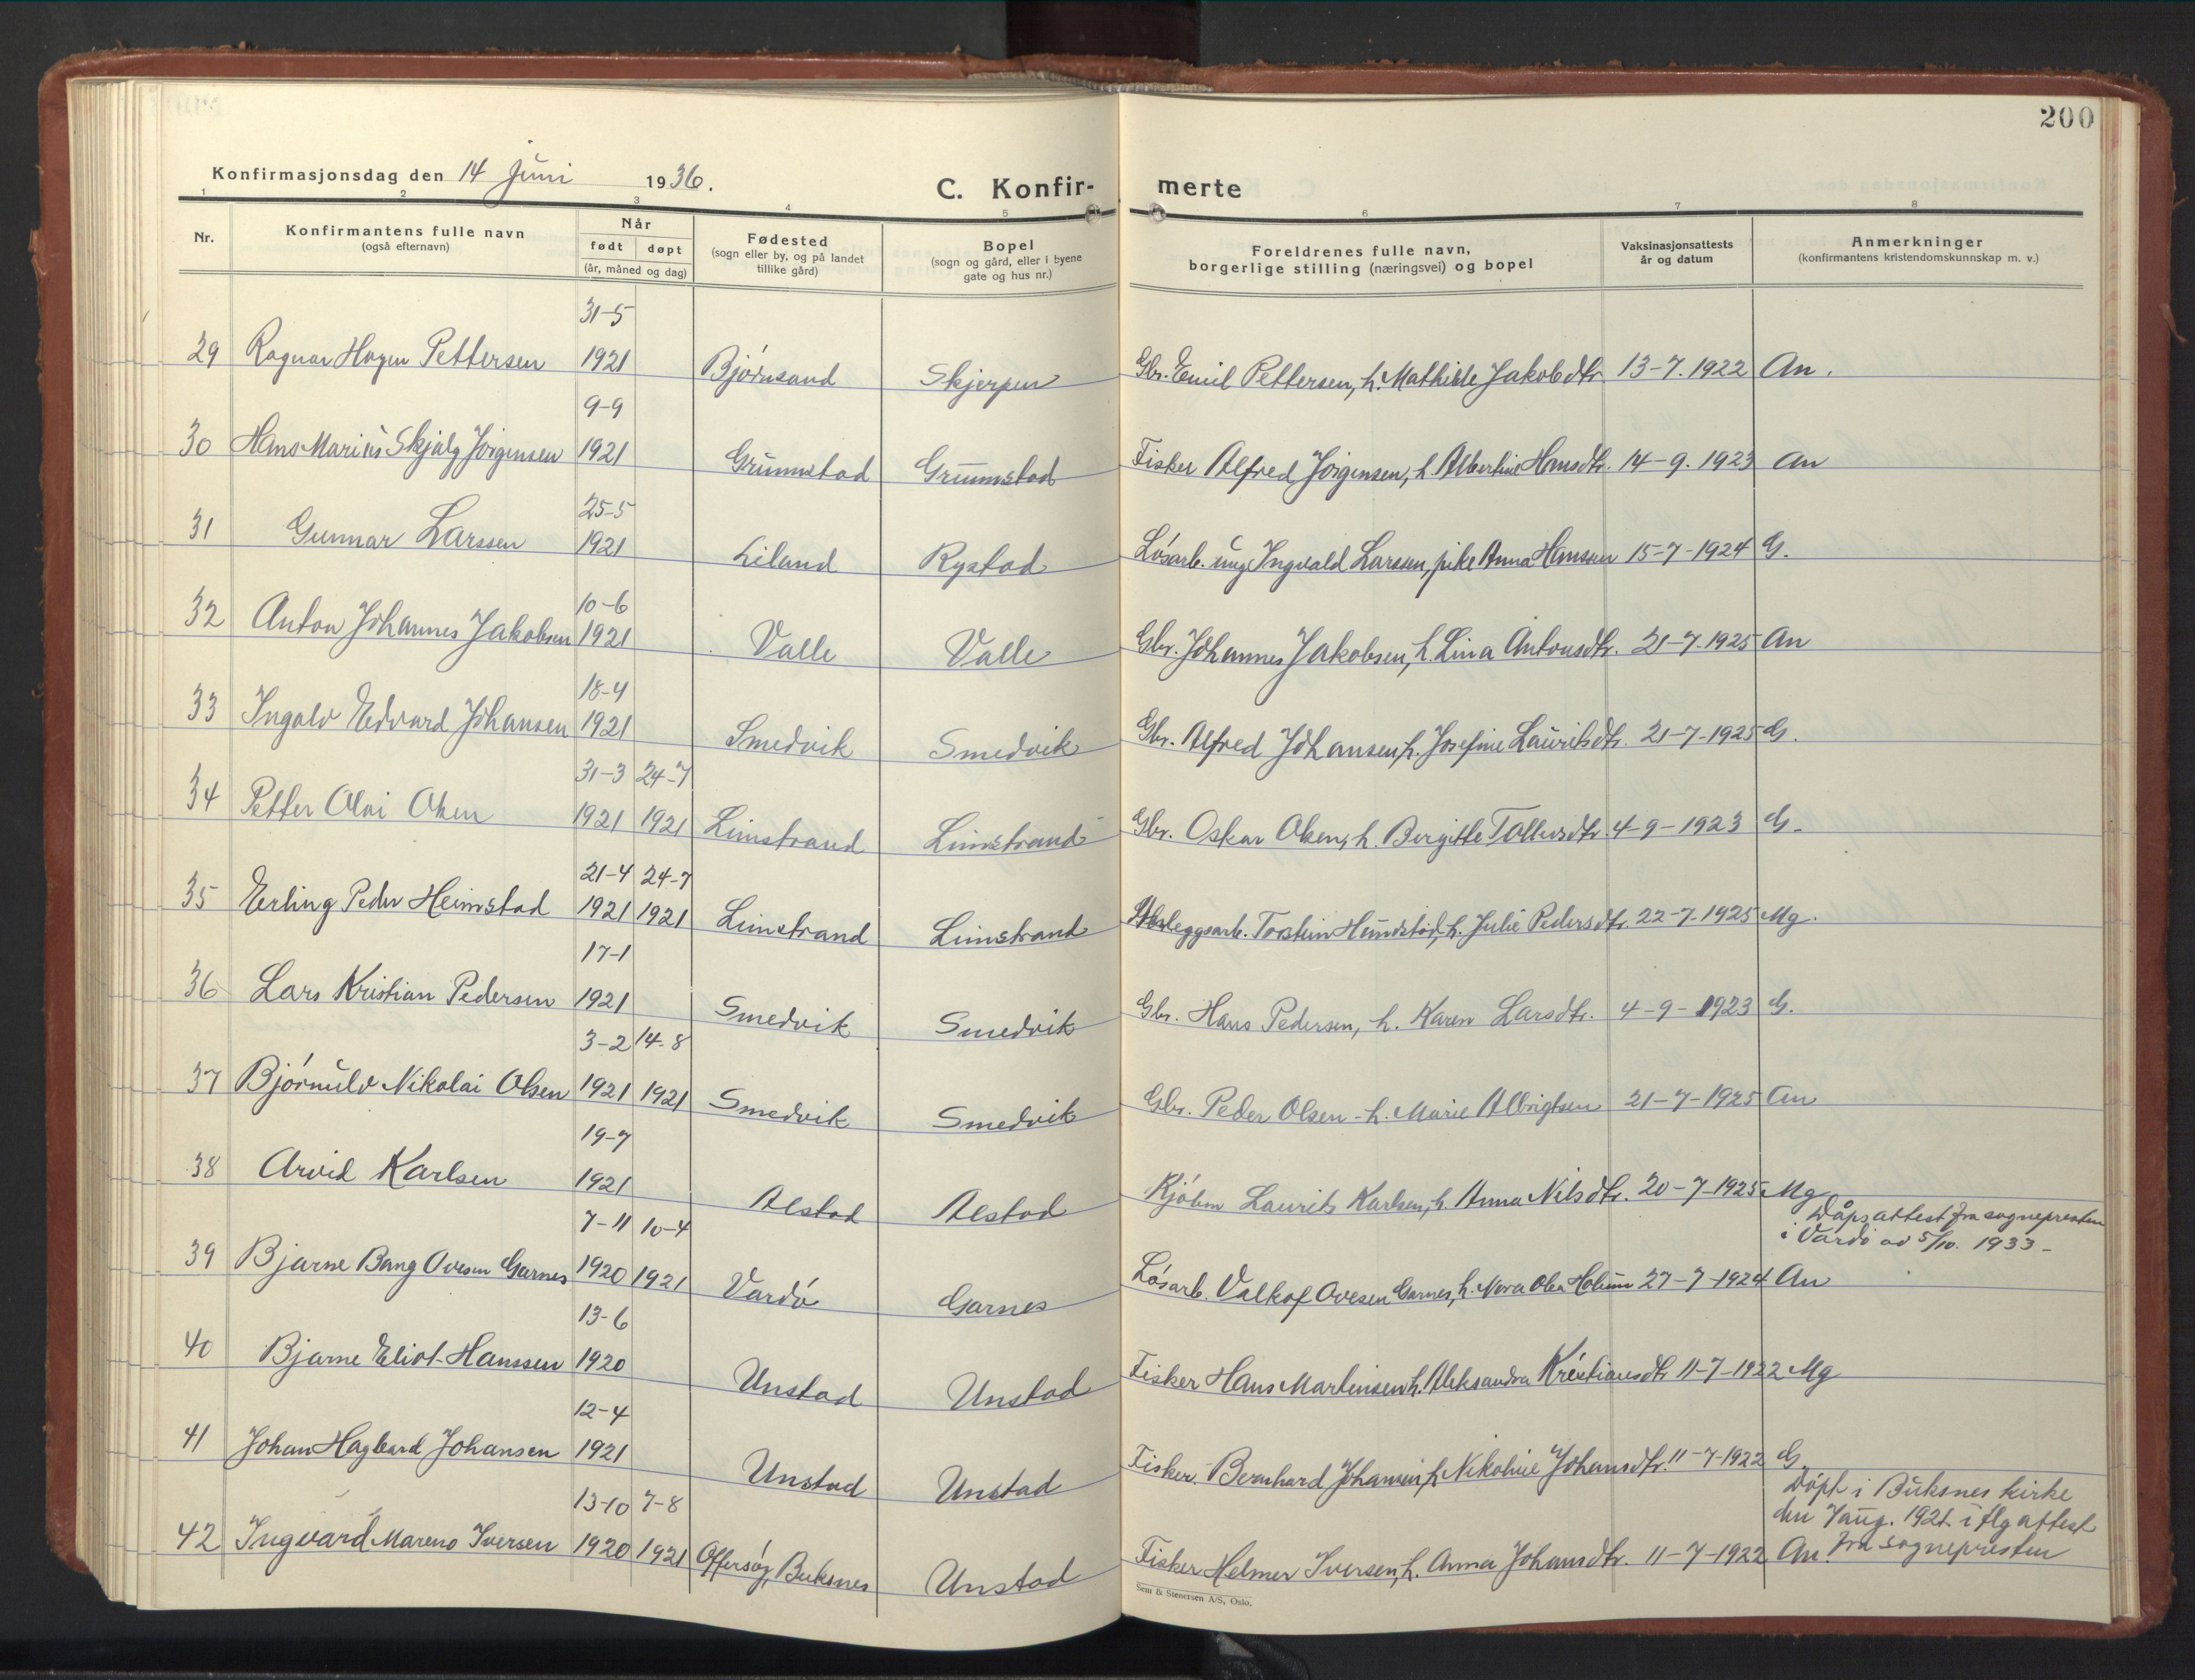 200
Konfirmasjonsdag den 14 Juni 1936.
C. Konfir- merte
1 2 3 4 5 6 7 8
Nr.
Konfirmantens fulle navn
(også efternavn)
Når
født døpt
(år, måned og dag)
Fødested
(sogn eller by, og på landet
tillike gård)
Bopel
(sogn og gård, eller i byene
gate og hus nr.)
Foreldrenes fulle navn,
borgerlige stilling (næringsvei) og bopel
Vaksinasjonsattests
år og datum
Anmerkninger
(konfirmantens kristendomskunnskap m. v.)
31-5
29 Ragnar Hagen Pettersen 1921 Bjørnsand Skjerpen Gbr. Emil Pettersen, h. Mathilde Jakobdtr. 13-7.1922 An.
9-9
30 Hans Marius Skjalg Jørgensen 1921 Grunnstad Grunnstad Fisker Alfred Jørgensen, h. Albertine Hansdtr. 14-9.1923 An
25-5
31 Gunnar Larssen 1921 Liland Rystad Løsarb. ung Ingvald Larssen, pike Anna Hansen 15-7-1924 G.
10-6
32 Anton Johannes Jakobsen 1921 Valle Valle Gbr. Johannes Jakobsen, h. Lina Antonsdtr. 21-7-1925 An
18-4
33 Ingolv Edvard Johansen 1921 Smedvik Smedvik Gbr. Alfred Johansen, h. Josefine Lauritsdtr. 21-7-1925 G.
31-3 24-7
34 Petter Olai Olsen 1921 1921 Limstrand Limstrand Gbr. Oskar Olsen, h. Bergitte Tollersdtr. 4-9-1923 G.
21-4 24-7
35 Erling Peder Heimstad 1921 1921 Limstrand Limstrand Torstein Heimstad, h. Julie Pedersdtr. 22-7-1925 Mg.
17-1
36 Lars Kristian Pedersen 1921 Smedvik Smedvik Gbr. Hans Pedersen, h. Karen Larsdtr. 4-9-1923 G.
3-2 14-8
37 Bjørnulv Nikolai Olsen 1921 1921 Smedvik Smedvik Gbr. Peder Olsen - h. Marie Albrigtsen 21-7-1925 An
19-7
38 Arvid Karlsen 1921 Alstad Alstad Kjøbm Laurits Karlsen, h. Anna Nilsdtr. 20-7-1925 Mg
7-11 10-4 Dåpsattest fra sognepresten
i Vardø av 5/10. 1933 -
39 Bjarne Bang Ovesen Garnes 1920 1921 Vardø Garnes Løsarb. Valkof Ovesen Garnes, h. Nora 27-7-1924 An
13-6
40 Bjarne Eliot Hanssen 1920 Unstad Unstad Fisker Hans Martinsen h. Aleksandra Kristiansdtr 11-7-1922 Mg
12-4
41 Johan Hagbard Johansen 1921 Unstad Unstad Fisker. Bernhard Johansen, h. Nikoline Johansdtr. 11-7-1922 G
13-10 7-8 Døpt i Buksnes kirke
den 7 aug. 1921 i flg attest
42 Ingvard Mareno Iversen 1920 1921 Offersøy, Buksnes Unstad Fisker Helmer Iversen, h. Anna Johansdtr. 11-7-1922 An. fra sognepresten
Sem & Stenersen A/S, Oslo.